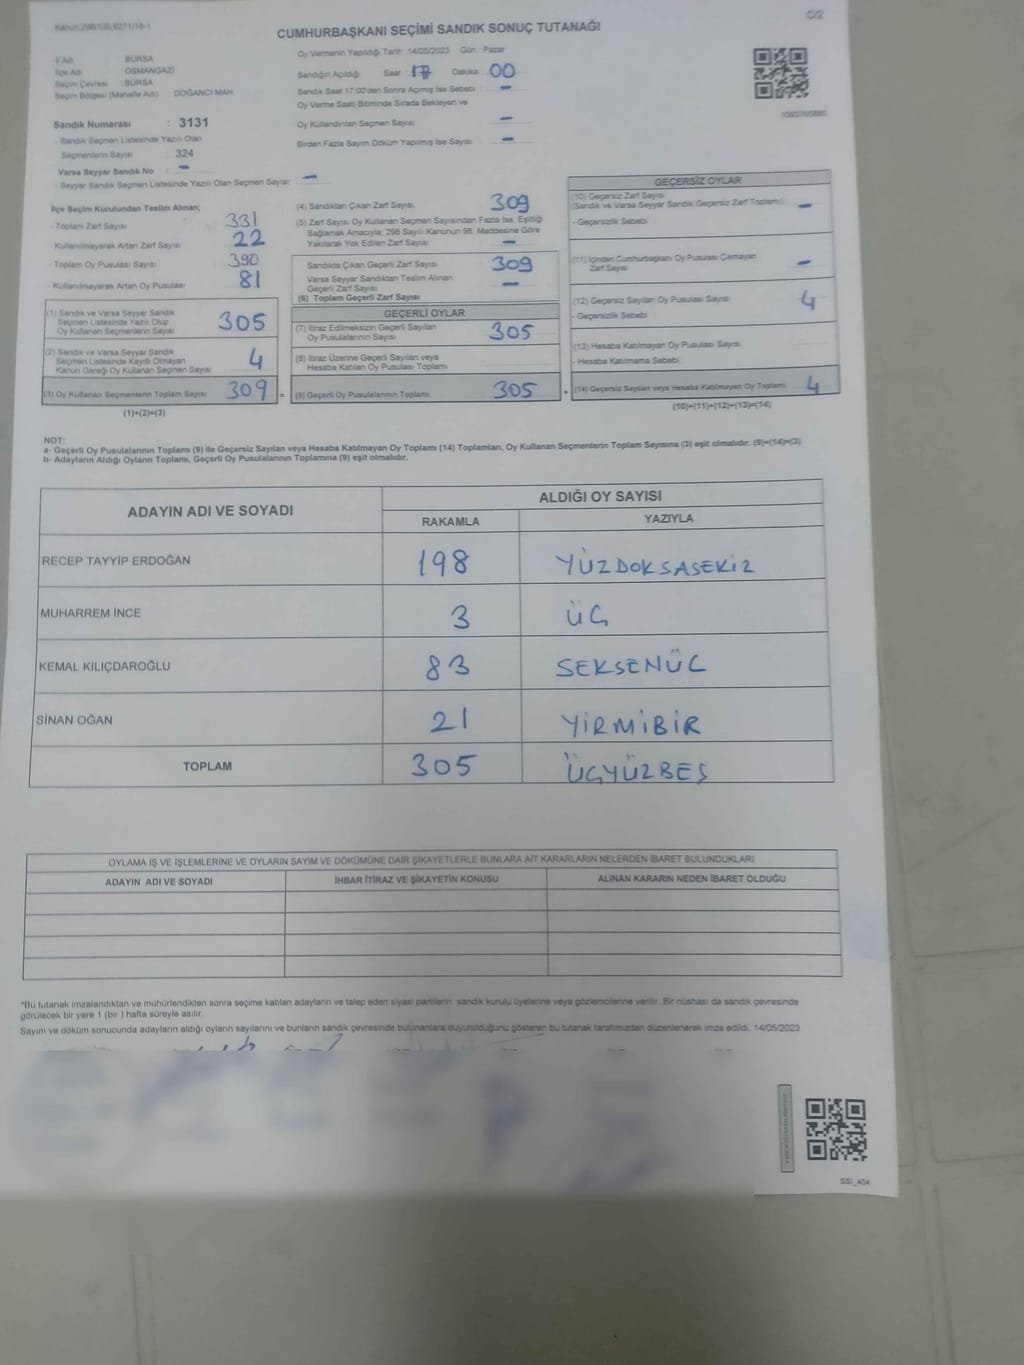 CUMHURBAŞKANI SEÇİMİ SANDIK SONUÇ TUTANAĞI
C/2
Oy Vermenin Yapıldığı Tarih 14/05/2023 Gün : Pazar
İl Adı : BURSA
İlçe Adı : OSMANGAZİ
Seçim Çevresi : BURSA
Seçim Bölgesi (Mahalle Adı) DOĞANCI MAH
Sandığın Açıldığı Saat 17 Dakika 00
Sandık Saat 17:00'den Sonra Açımış İse Sebebi –
Oy Verme Saati Bitiminde Sırada Bekleyen ve
Oy Kullandırılan Seçmen Sayısı –
Birden Fazla Sayım Döküm Yapılmış İse Sayısı –
Sandık Numarası : 3131
- Sandık Seçmen Listesinde Yazılı Olan
Seçmenlerin Sayısı : 324
Varsa Seyyar Sandık No : –
- Seyyar Sandık Seçmen Listesinde Yazılı Olan Seçmen Sayısı: –
İlçe Seçim Kurulundan Teslim Alınan;
- Toplam Zarf Sayısı 331
- Kullanılmayarak Artan Zarf Sayısı 22
- Toplam Oy Pusulası Sayısı 390
- Kullanılmayarak Artan Oy Pusulası 81
(1) Sandık ve Varsa Seyyar Sandık
Seçmen Listesinde Yazılı Olup
Oy Kullanan Seçmenlerin Sayısı 305
(2) Sandık ve Varsa Seyyar Sandık
Seçmen Listesinde Kayıtlı Olmayan
Kanun Gereği Oy Kullanan Seçmen Sayısı 4
(3) Oy Kullanan Seçmenlerin Toplam Sayısı 309
(1)+(2)=(3)
(4) Sandıktan Çıkan Zarf Sayısı 309
(5) Zarf Sayısı Oy Kullanan Seçmen Sayısından Fazla İse, Eşitliği
Sağlamak Amacıyla; 298 Sayılı Kanunun 98. Maddesine Göre
Yakılarak Yok Edilen Zarf Sayısı –
Sandıkta Çıkan Geçerli Zarf Sayısı 309
Varsa Seyyar Sandıktan Teslim Alınan
Geçerli Zarf Sayısı –
(6) Toplam Geçerli Zarf Sayısı
GEÇERLİ OYLAR
(7) İtiraz Edilmeksizin Geçerli Sayılan
Oy Pusulalarının Sayısı 305
(8) İtiraz Üzerine Geçerli Sayılan veya
Hesaba Katılan Oy Pusulası Toplamı
(9) Geçerli Oy Pusulalarının Toplamı 305
GEÇERSİZ OYLAR
(10) Geçersiz Zarf Sayısı
(Sandık ve Varsa Seyyar Sandık Geçersiz Zarf Toplamı) –
- Geçersizlik Sebebi
(11) İçinden Cumhurbaşkanı Oy Pusulası Çıkmayan
Zarf Sayısı –
(12) Geçersiz Sayılan Oy Pusulası Sayısı 4
- Geçersizlik Sebebi:
(13) Hesaba Katılmayan Oy Pusulası Sayısı
- Hesaba Katılmama Sebebi:
(14) Geçersiz Sayılan veya Hesaba Katılmayan Oy Toplamı 4
(10)+(11)+(12)+(13)=(14)
NOT:
a- Geçerli Oy Pusulalarının Toplamı (9) ile Geçersiz Sayılan veya Hesaba Katılmayan Oy Toplamı (14) Toplamları, Oy Kullanan Seçmenlerin Toplam Sayısına (3) eşit olmalıdır. (9)+(14)=(3)
b- Adayların Aldığı Oyların Toplamı, Geçerli Oy Pusulalarının Toplamına (9) eşit olmalıdır.
ADAYIN ADI VE SOYADI ALDIĞI OY SAYISI
RAKAMLA YAZIYLA
RECEP TAYYİP ERDOĞAN 198 YÜZDOKSASEKİZ
MUHARREM İNCE 3 ÜÇ
KEMAL KILIÇDAROĞLU 83 SEKSENÜC
SİNAN OĞAN 21 YİRMİBİR
TOPLAM 305 ÜÇYÜZBEŞ
OYLAMA İŞ VE İŞLEMLERİNE VE OYLARIN SAYIM VE DÖKÜMÜNE DAİR ŞİKAYETLERLE BUNLARA AİT KARARLARIN NELERDEN İBARET BULUNDUKLARI
ADAYIN ADI VE SOYADI İHBAR İTİRAZ VE ŞİKAYETİN KONUSU ALINAN KARARIN NEDEN İBARET OLDUĞU
*Bu tutanak imzalandıktan ve mühürlendikten sonra seçime katılan adayların ve talep eden siyasi partilerin sandık kurulu üyelerine veya gözlemcilerine verilir. Bir nüshası da sandık çevresinde
görülecek bir yere 1 (bir ) hafta süreyle asılır.
Sayım ve döküm sonucunda adayların aldığı oyların sayılarını ve bunların sandık çevresinde bulunanlara duyurulduğunu gösteren bu tutanak tarafımızdan düzenlenerek imza edildi. 14/05/2023
SSI_404